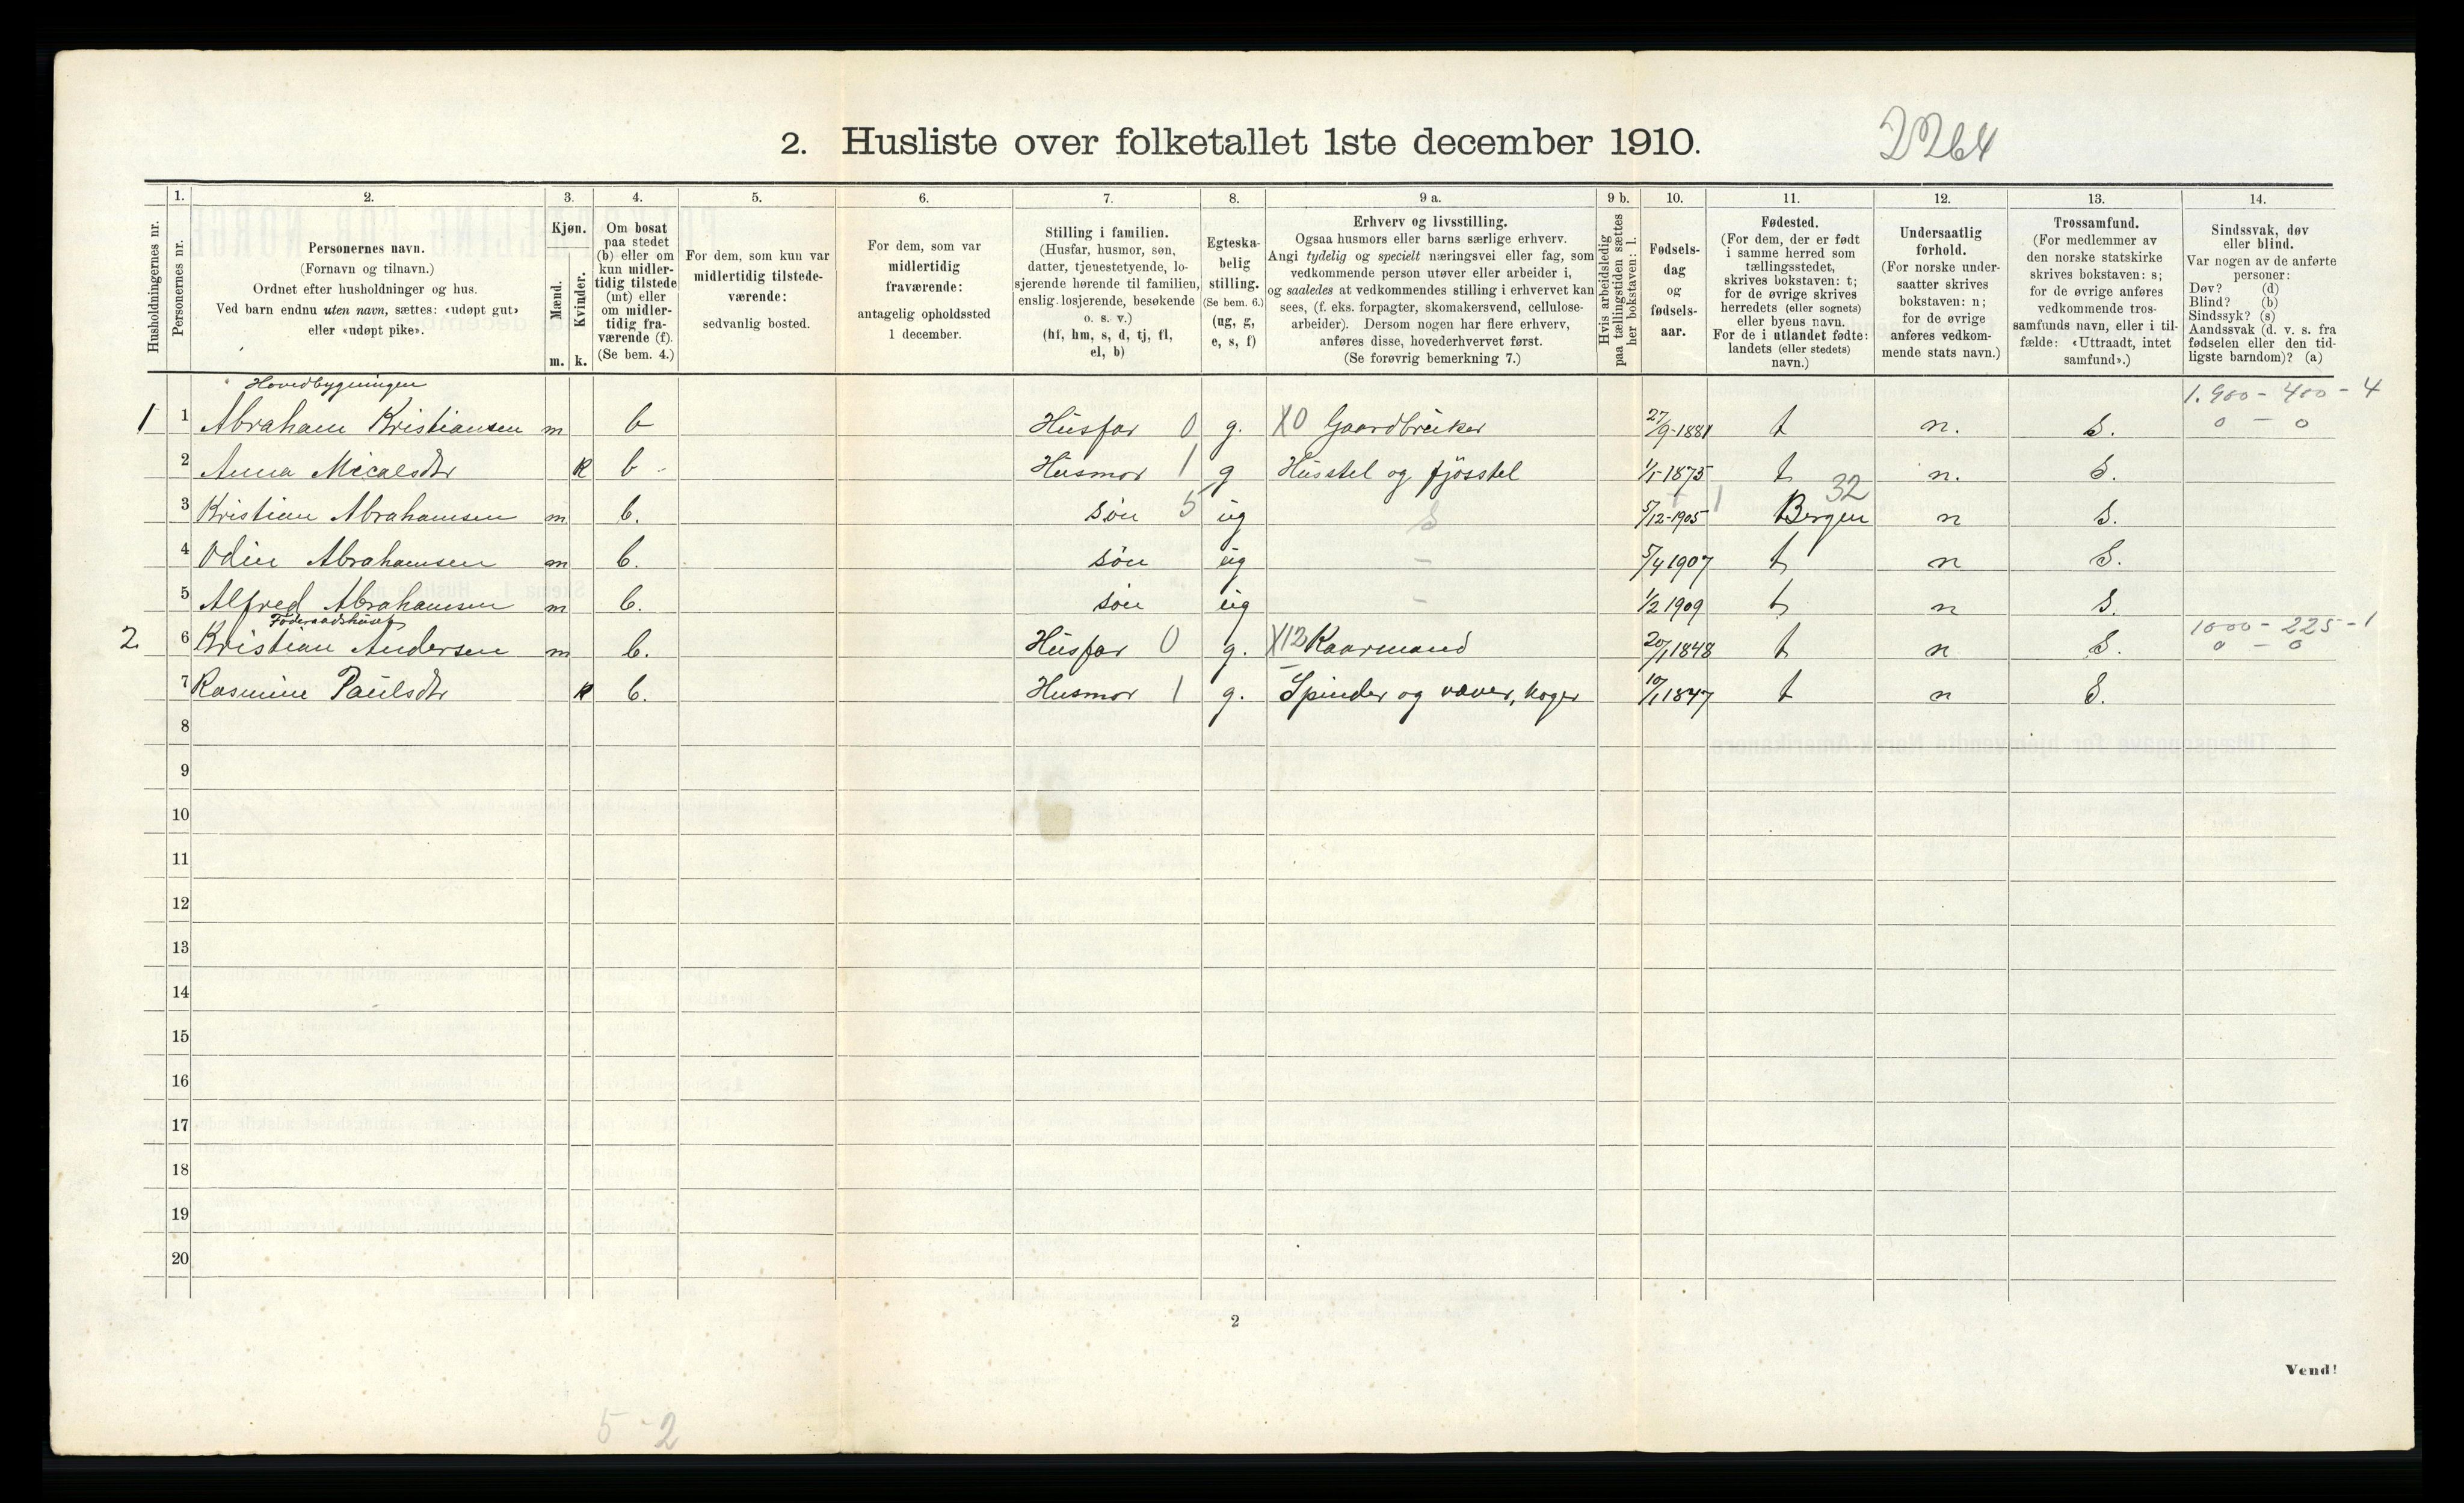 2. Husliste over folketallet 1ste december 1910.
2264
Husholdningernes nr.
1.
Personernes nr.
2.
Personernes navn.
(Fornavn og tilnavn.)
Ordnet efter husholdninger og hus.
Ved barn endnu uten navn, sættes: «udøpt gut»
eller «udøpt pike».
3.
Kjøn.
Mænd.
Kvinder.
m. k.
4.
Om bosat
paa stedet
(b) eller om
kun midler-
tidig tilstede
(mt) eller
om midler-
tidig fra-
værende (f).
(Se bem. 4.)
5.
For dem, som kun var
midlertidig tilstede-
værende:
sedvanlig bosted.
6.
For dem, som var
midlertidig
fraværende:
antagelig opholdssted
1 december.
7.
Stilling i familien.
(Husfar, husmor, søn,
datter, tjenestetyende, lo-
sjerende hørende til familien,
enslig losjerende, besøkende
o. s. v.)
(hf, hm, s, d, tj, fl,
el, b)
8.
Egteska-
belig
stilling.
(Se bem. 6.)
(ug, g,
e, s, f)
9 a.
Erhverv og livsstilling.
Ogsaa husmors eller barns særlige erhverv.
Angi tydelig og specielt næringsvei eller fag, som
vedkommende person utøver eller arbeider i,
og saaledes at vedkommendes stilling i erhvervet kan
sees, (f. eks. forpagter, skomakersvend, cellulose-
arbeider). Dersom nogen har flere erhverv,
anføres disse, hovederhvervet først.
(Se forøvrig bemerkning 7.)
9 b.
Hvis arbeidsledig
paa tællingstiden sættes
her bokstaven: l.
10.
Fødsels-
dag
og
fødsels-
aar.
11.
Fødested.
(For dem, der er født
i samme herred som
tællingsstedet,
skrives bokstaven: t;
for de øvrige skrives
herredets (eller sognets)
eller byens navn.
For de i utlandet fødte:
landets (eller stedets)
navn.)
12.
Undersaatlig
forhold.
(For norske under-
saatter skrives
bokstaven: n;
for de øvrige
anføres vedkom-
mende stats navn.)
13.
Trossamfund.
(For medlemmer av
den norske statskirke
skrives bokstaven: s;
for de øvrige anføres
vedkommende tros-
samfunds navn, eller i til-
fælde: «Uttraadt, intet
samfund».)
14.
Sindssvak, døv
eller blind.
Var nogen av de anførte
personer:
Døv? (d)
Blind? (b)
Sindssyk? (s)
Aandssvak (d. v. s. fra
fødselen eller den tid-
ligste barndom)? (a)
Hovedbygningen
1.900 - 400 - 4
1 1 Abraham Kristiansen m b Husfar 0 g. X0 Gaardbruker 27/9-1881 t n. S. 0 - 0
2 Anna Micalsdtr K b Husmor 1 g Husstel og fjösstel 1/5-1875 t n. S.
32
3 Kristian Abrahamsen m b. søn 5 ug S 5/12-1905 1 Bergen n S.
4 Odin Abrahamsen m b. søn ug - 5/4 1907 t n S.
5 Alfred Abrahamsen m b. søn ug - 1/2 1909 t n S.
Föderaadshuset
1000 - 225 - 1
2. 6 Kristian Andersen m b. Husfar 0 g. X12 Kaarmand 20/1 1848 t n S. 0 - 0
7 Rasmine Paulsdtr K b. Husmor 1 g. Spinder og væver, koger 10/1 1847 t n S.
8
9
10
11
12
13
14
15
16
17
18
19
20
2
Vend!
5 - 2